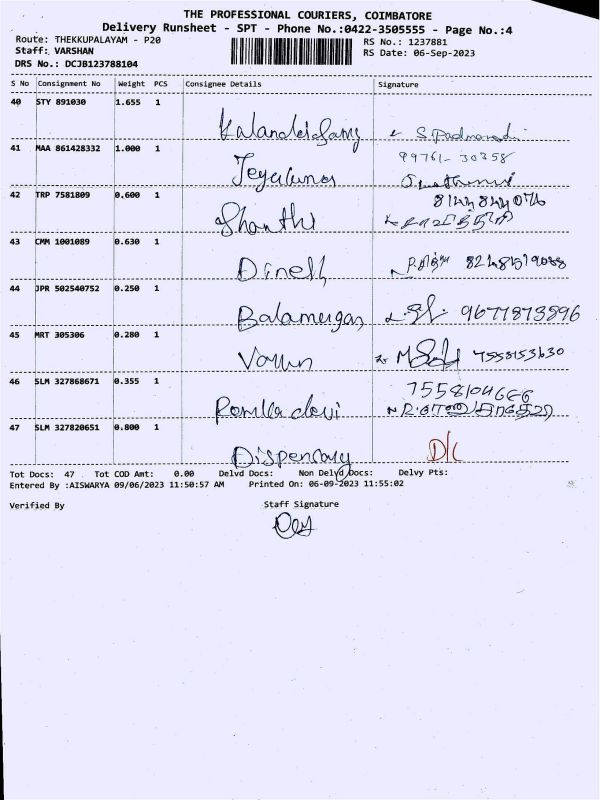 THE PROFESSIONAL COURIERS, COIMBATORE
Delivery Runsheet - SPT - Phone No.:0422-3505555 - Page No.:4
Route: THEKKUPALAYAM - P20
RS No.: 1237881
Staff: VARSHAN
RS Date: 06-Sep-2023
DRS No.: DCJB123788104
S No Consignment No Weight PCS Consignee Details Signature
40 STY 891030 1.655 1 S. Padmavadi
41 MAA 861428332 1.000 1 99761-30358
42 TRP 7581809 0.600 1 Shanthi
43 CMM 1001089 0.630 1 Dinesh
44 JPR 502540752 0.250 1 Balamurgan 9677873896
45 MRT 305306 0.280 1 Varun 7558153630
46 SLM 327868671 0.355 1 devi 7558104666
47 SLM 327820651 0.800 1 Dispensary D/C
Tot Docs: 47 Tot COD Amt: 0.00 Delvd Docs: Non Delvd Docs: Delvy Pts:
Entered By :AISWARYA 09/06/2023 11:50:57 AM Printed On: 06-09-2023 11:55:02
Verified By Staff Signature